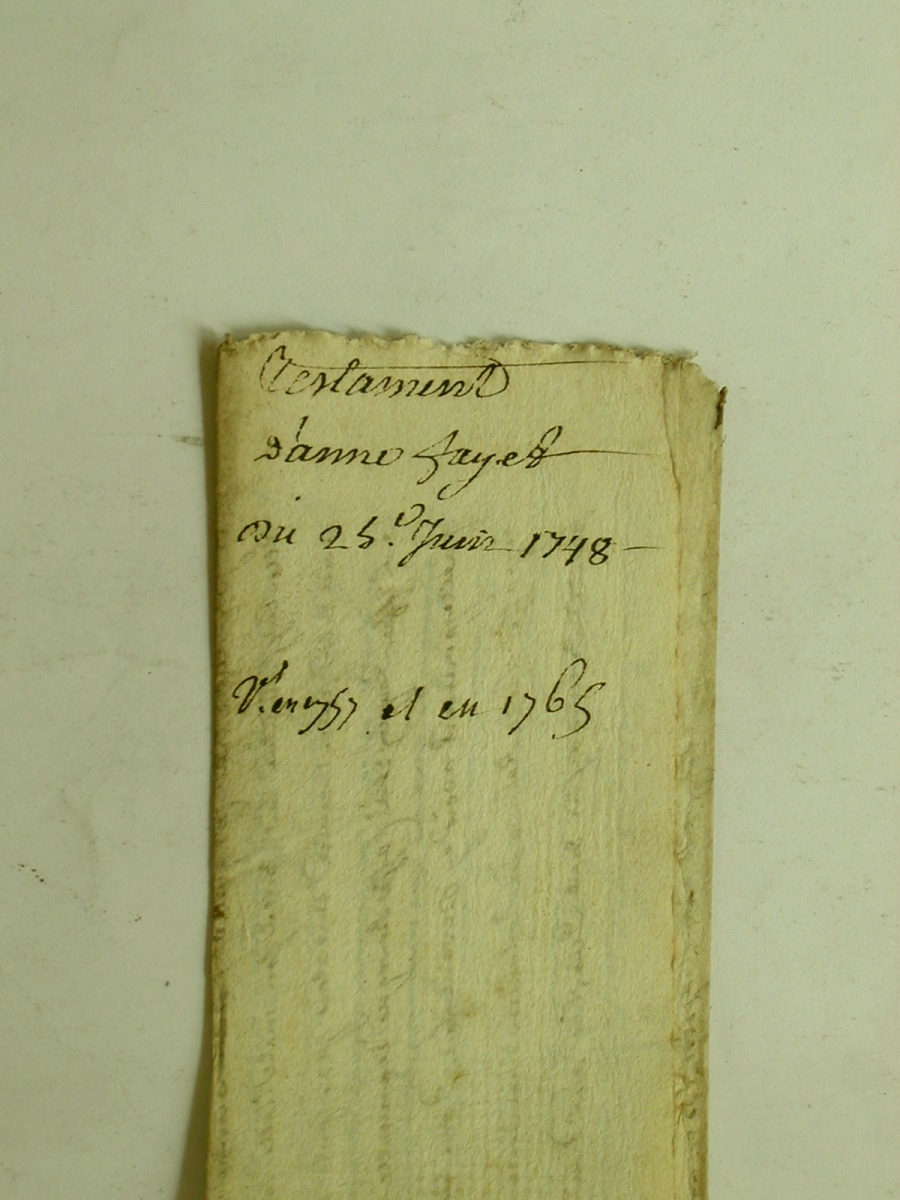 Testament
d'anne fayet
Du 25.e Juin 1748
Vt. en 1757 et en 1765